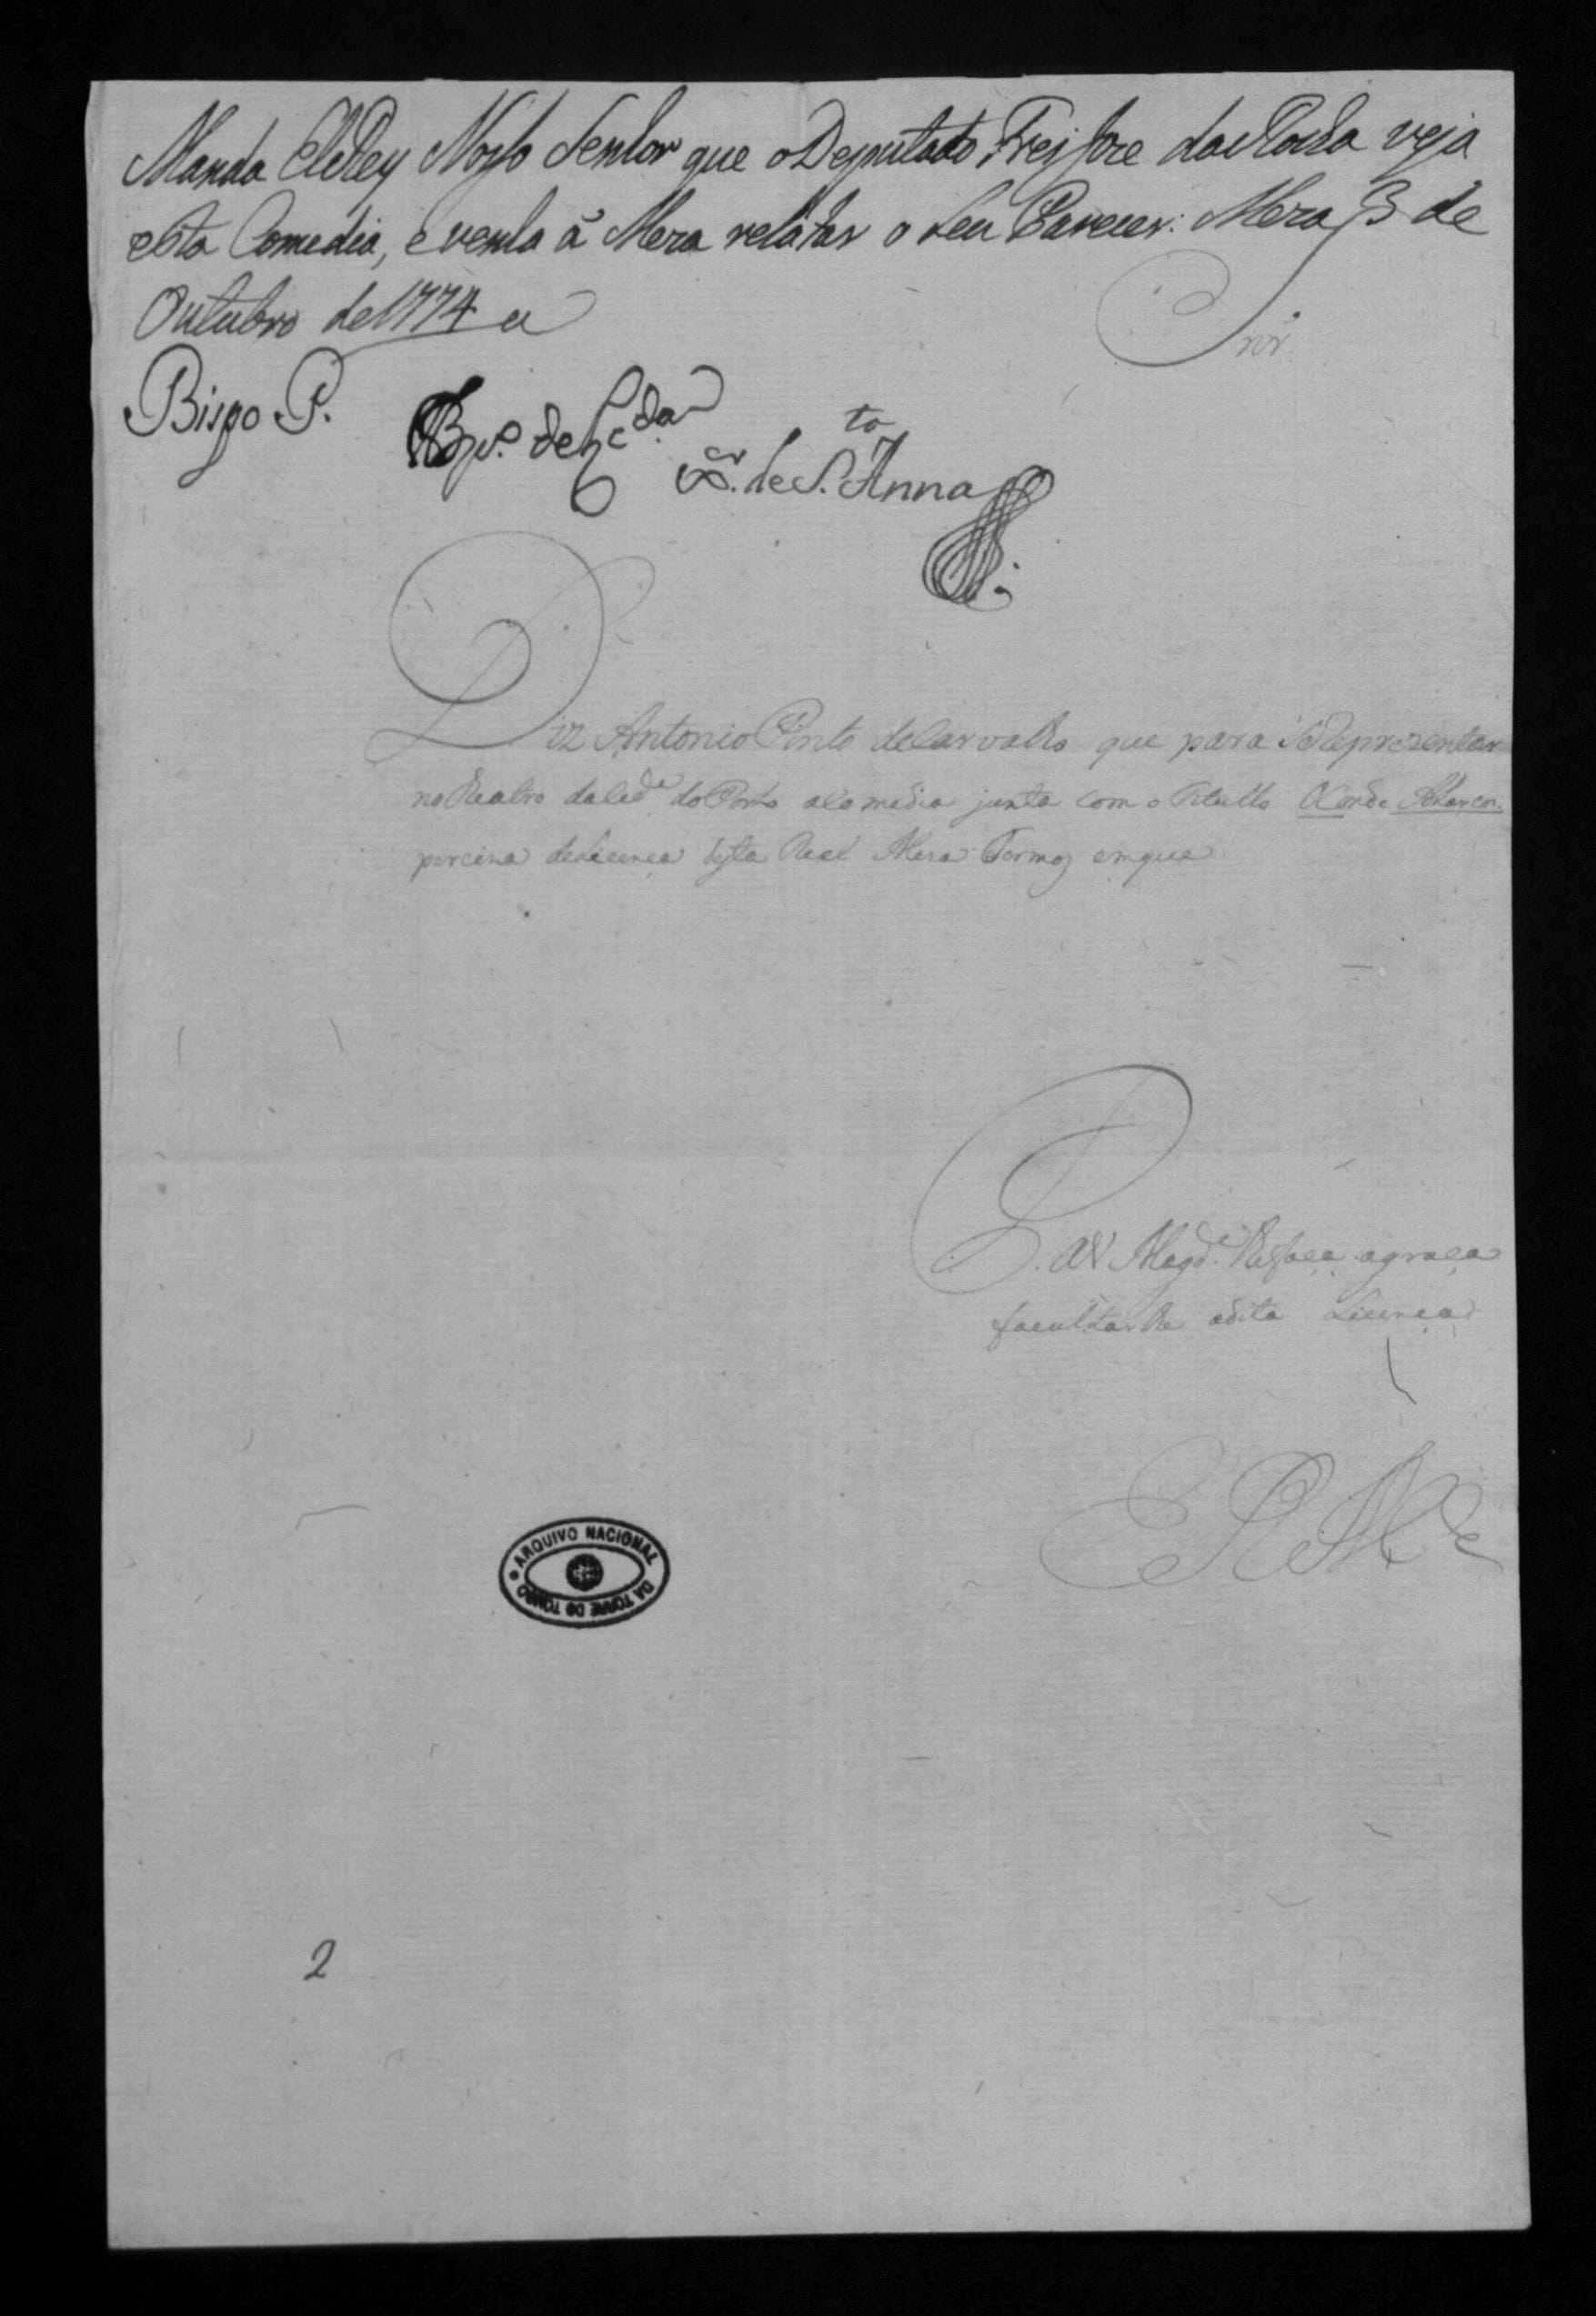 Manda ElRey Nosso Senhor que o Deputado Frei Joze da Rocha veja
esta Comedia, e venha á Meza relatar o seu Parecer: Meza 3 de
Outubro de 1774
Snr.
Bispo P.
de S.ta Anna
Diz Antonio Pinto de Carvalho que para Reprezentar
no Theatro da Cid.e do Porto a Comedia junta com o Titullo O Conde Alarcos
perciza de Licença desta Real Meza Termos em que
P. a V Magd.e lhe faça a graça
facultar lhe a dita Licença
E R M.ce
ARQUIVO NACIONAL DA TORRE DO TOMBO
2